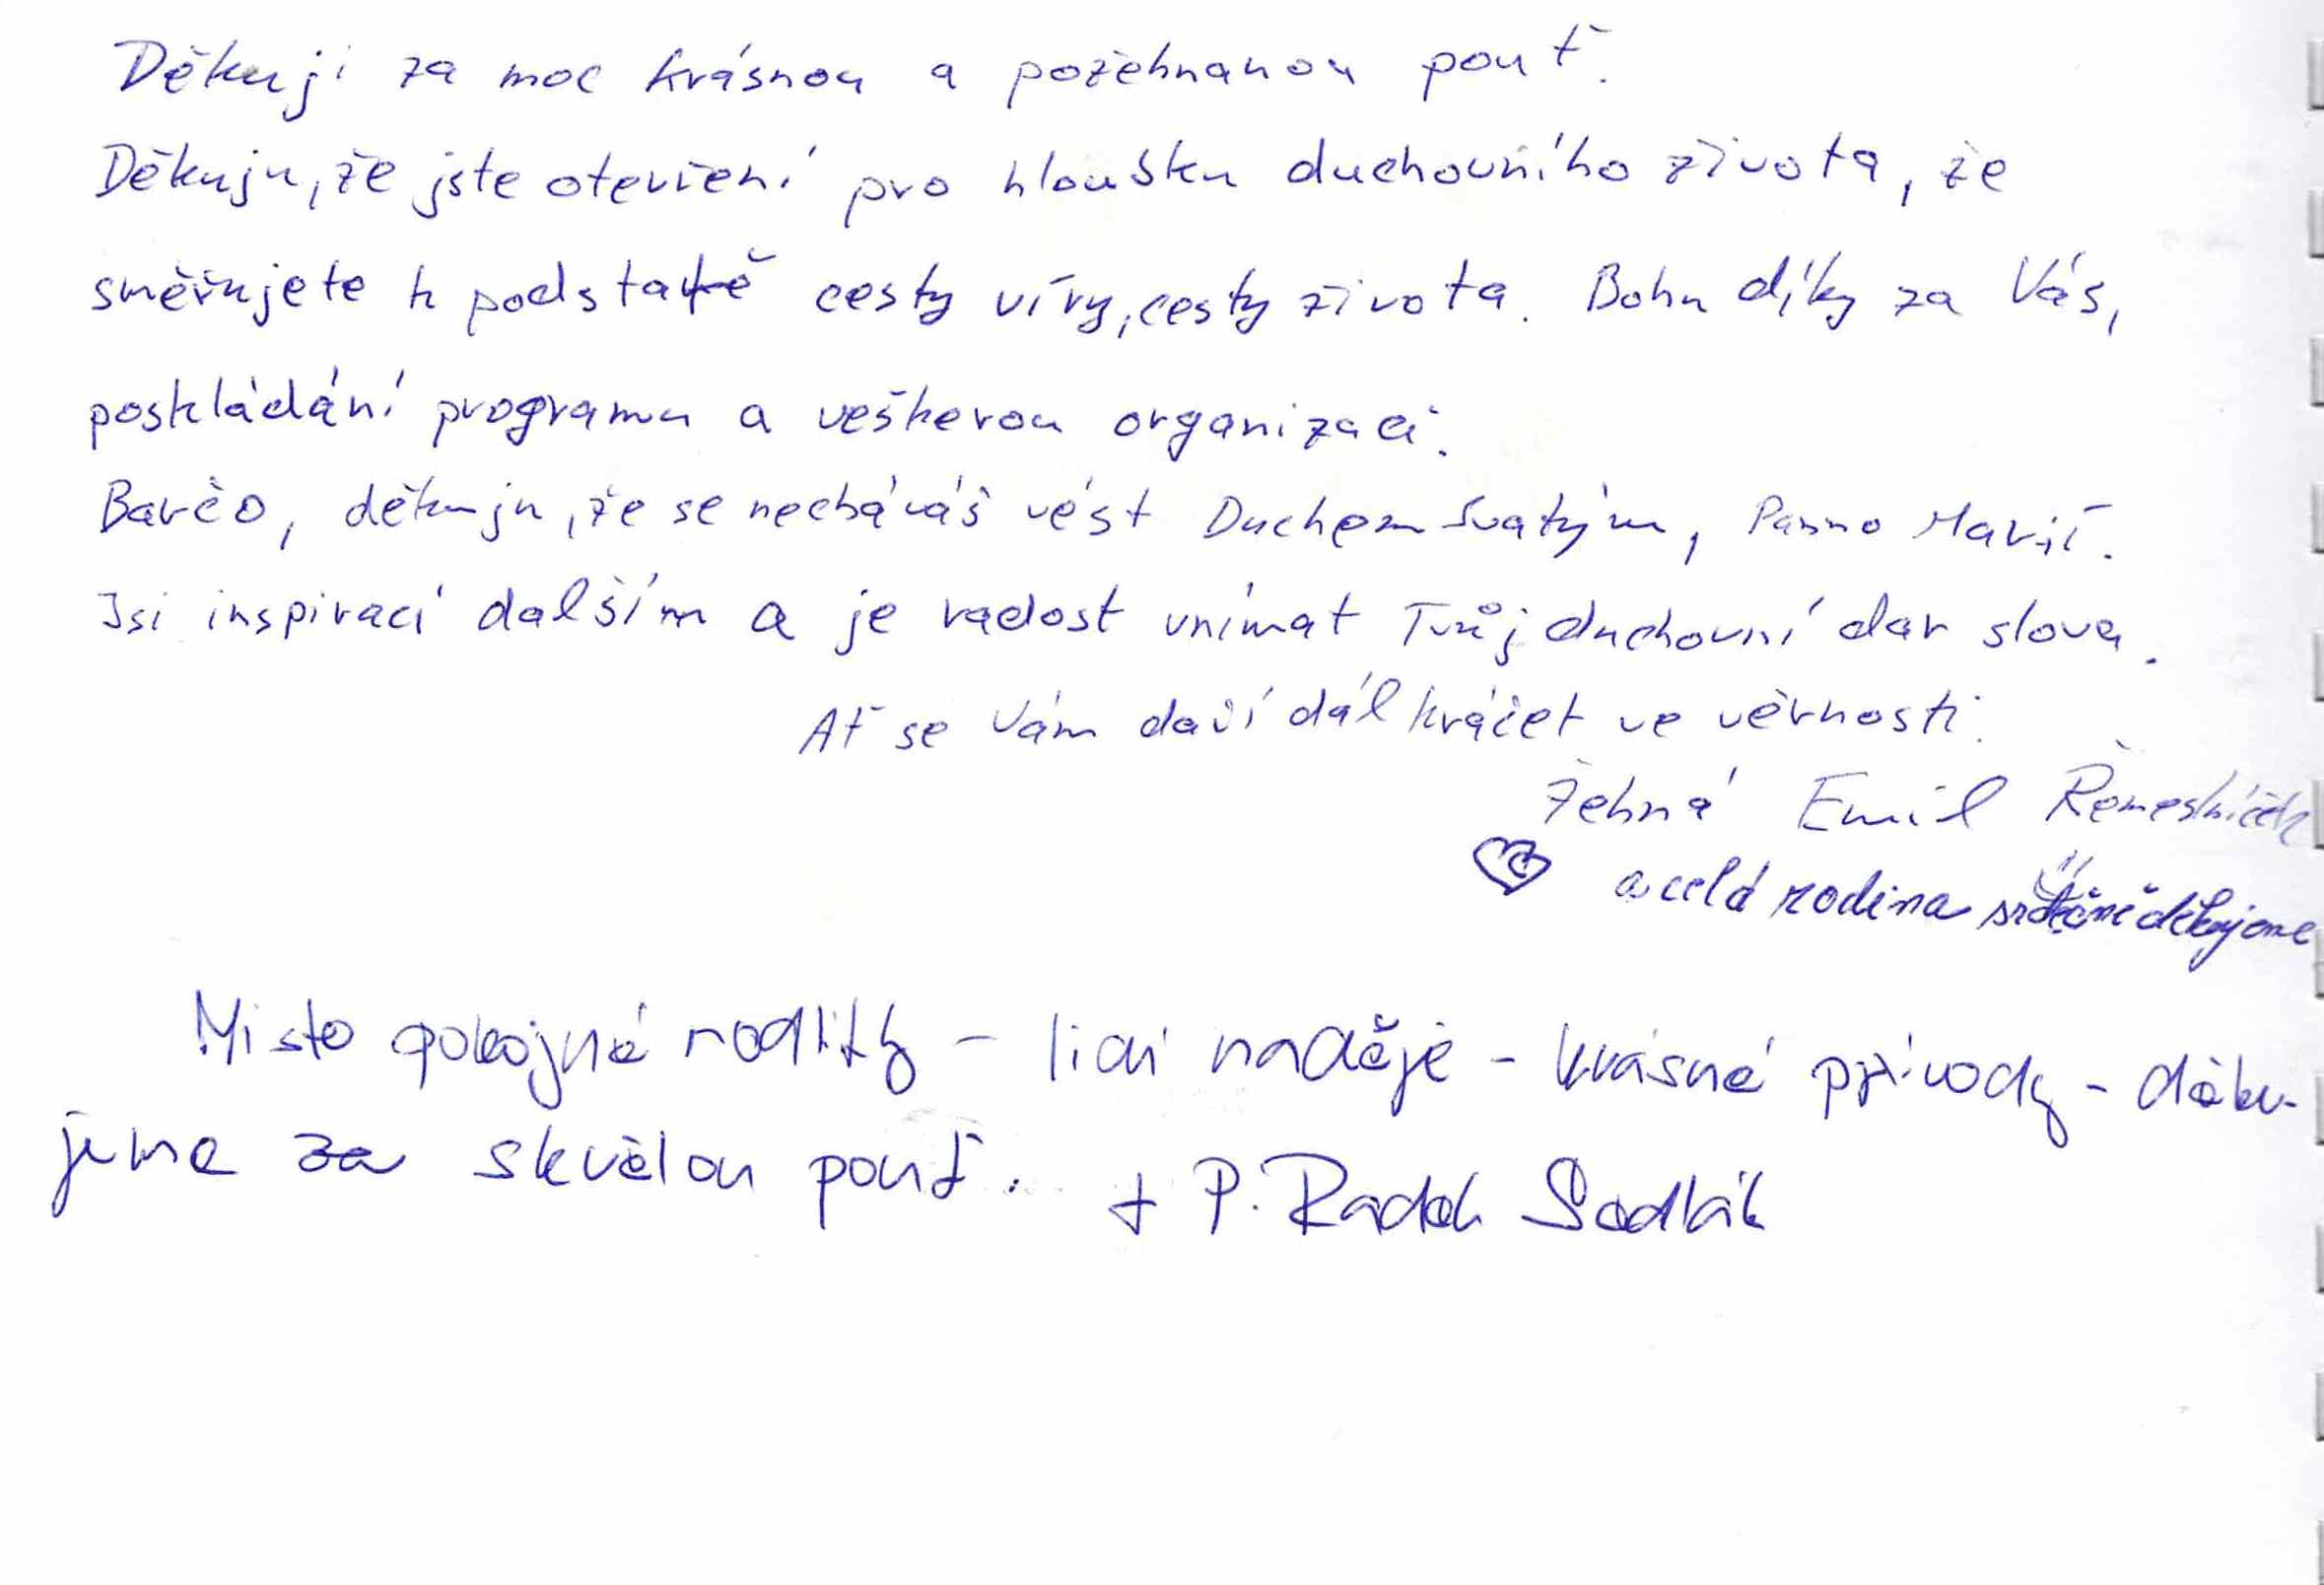 Děkuji za moc krásnou a požehnanou pouť.
Děkuju, že jste otevření pro hloubku duchovního života, že
směřujete k podstatě cesty víry, cesty života. Bohu díky za Vás,
poskládání programu a veškerou organizaci.
Barčo, děkuju, že se necháváš vést Duchem Svatým, Panno Marií.
Jsi inspirací dalším a je radost vnímat Tvůj duchovní dar slova.
Ať se Vám daří dál kráčet ve věrnosti.
Žehná Emil Řemeslníček
a celá rodina srdečně děkujeme
Místo pokojné modlitby – lidí naděje – krásné přírody – děku-
jeme za skvělou pouť. + P. Radek Sedlák